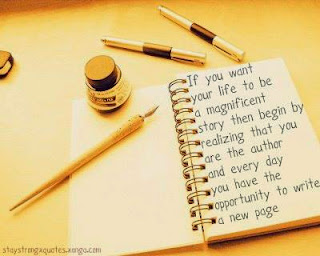 If you want
your life to be
a magnificent
story then begin by
realizing that you
are the author
and every day
you have the
opportunity to write
a new page
staystrongxquotes.xanga.com